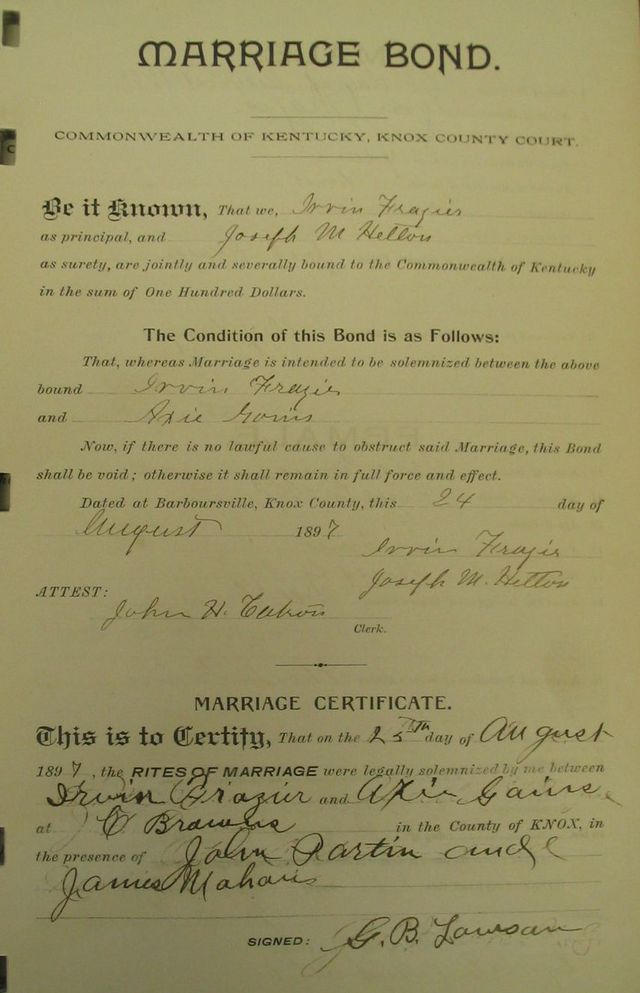 MARRIAGE BOND.
COMMONWEALTH OF KENTUCKY, KNOX COUNTY COURT.
Be it Known, That we, Irvin Frazier
as principal, and Joseph M Hellon
as surety, are jointly and severally bound to the Commonwealth of Kentucky
in the sum of One Hundred Dollars.
The Condition of this Bond is as Follows:
That, whereas Marriage is intended to be solemnized between the above
bound Irvin Frazier
and Axie Goins
Now, if there is no lawful cause to obstruct said Marriage, this Bond
shall be void; otherwise it shall remain in full force and effect.
Dated at Barboursville, Knox County, this 24 day of
August 1897
Irvin Frazier
Joseph M.
ATTEST:
John H.
Clerk.
MARRIAGE CERTIFICATE.
This is to Certify, That on the 25th day of August
1897, the RITES OF MARRIAGE were legally solemnized by me between
Irvin Frazier and Axie Goins
at Browns in the County of KNOX, in
the presence of John Partin and
James Mahan
SIGNED: G. B. Lawson